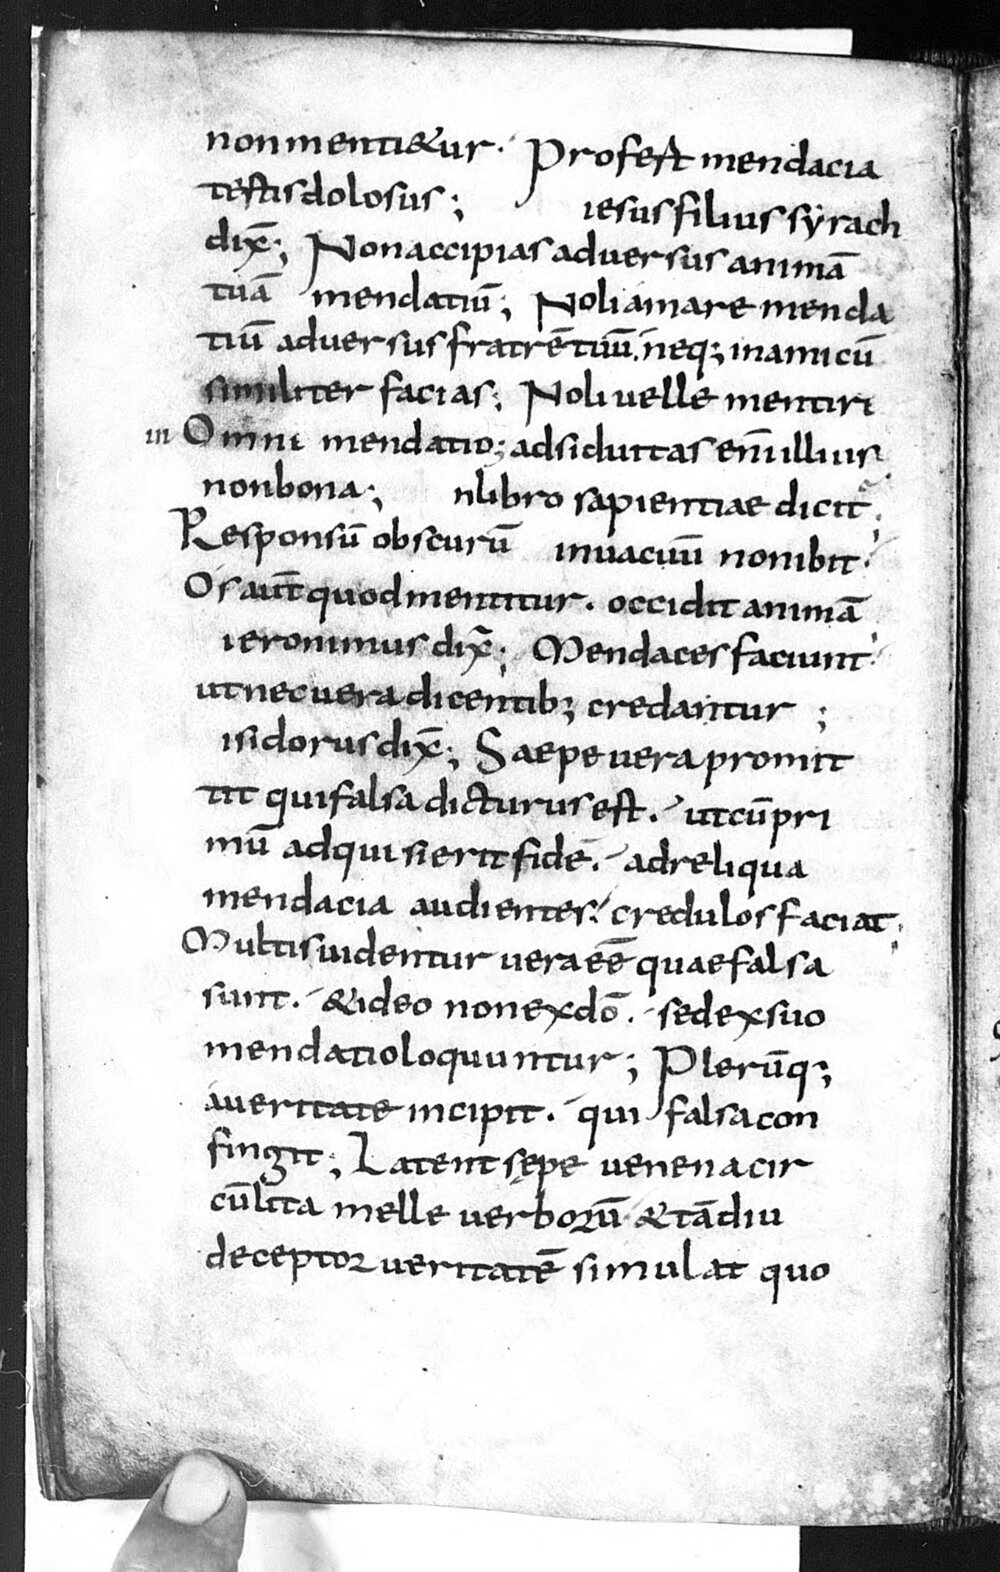 non menti&ur. Profert mendacia
testis dolosus; iesus filius syrach
dix̄; Non accipias adversus animā
tuā mendatiū; Noli amare menda
tiū adversus fratrē tuū. neq; in amicū
similiter facias; Noli velle mentiri
in Omni mendatio; adsiduitas eni̅ illius
non bona; n libro sapientiae dicit̃;
Responsū obscurū in vacuū non ibit.
Os aūt quod mentitur. occidit animā
ieronimus dix̃; Mendaces faciunt.
ut nec vera dicentib; credantur;
isidorus dix̄; Saepe vera promit
tit qui falsa dicturus est. ut cū pri
mū adquisierit fidē. ad reliqua
mendacia audientes. credulos faciat;
Multis videntur vera eē quae falsa
sunt. & ideo non ex dō. sed ex suo
mendatio loquuntur; Plerūq;
a veritate incipit. qui falsa con
fingit; Latent sępe venena cir
cūlita melle verborū & tādiu
deceptor veritatē simulat quo